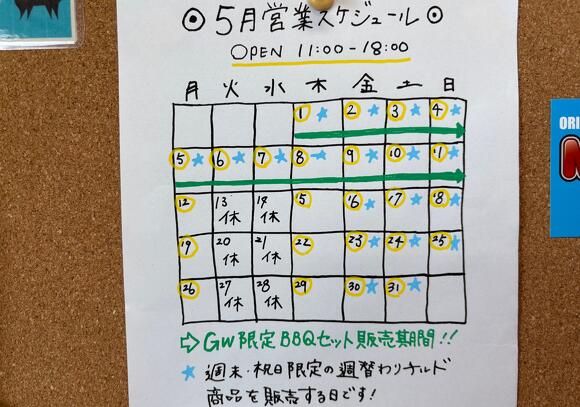 5月営業スケジュール
OPEN 11:00-18:00
月 火 水 木 金 土 日
1★ 2★ 3★ 4★
5★ 6★ 7★ 8★ 9★ 10★ 11★
12 13休 14休 15 16★ 17★ 18★
19 20休 21休 22 23★ 24★ 25★
26 27休 28休 29 30★ 31★
⇨GW限定BBQセット販売期間!!
★週末・祝日限定の週替わりチルド
商品を販売する日です!
ORI